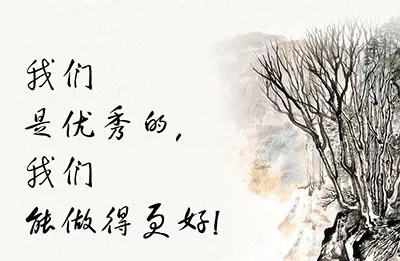 我们
是优秀的，
我们
能做得更好！